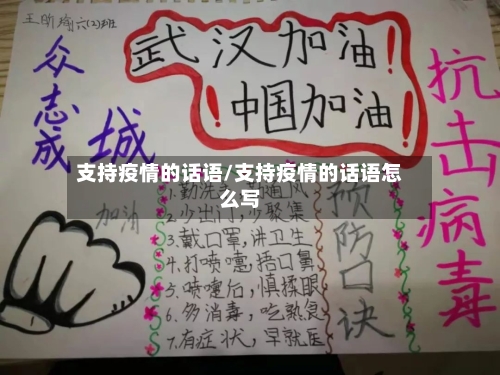 王昕瑜六(2)班
武汉加油!
!中国加油!
众志成
城
抗击病毒
支持疫情的话语/支持疫情的话语怎
么写
加油
预防口诀
1.勤洗手 通风
2.少出门,少聚集
3.戴口罩,讲卫生
4.打喷嚏,捂口鼻
5.喷嚏后,惧揉眼
6.多消毒,吃熟食
7.有症状,早就医